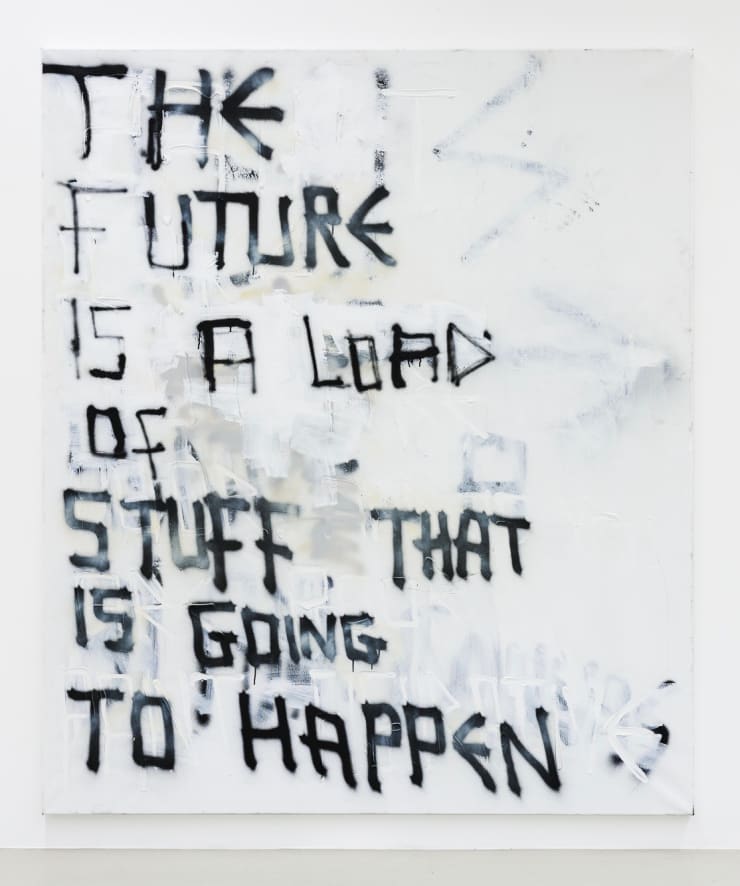 THE
FUTURE
IS A LOAD
OF
STUFF THAT
IS GOING
TO HAPPEN